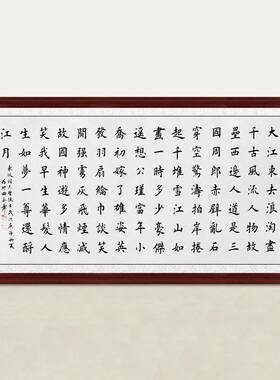 大江東去浪淘盡
千古風流人物故
壘西邊人道是三
國周郎赤壁亂石
穿空驚濤拍岸捲
起千堆雪江山如
畫一時多少豪傑
遙想公瑾當年小
喬初嫁了雄姿英
發羽扇綸巾談笑
間強虜灰飛煙滅
故國神遊多情應
笑我早生華髮人
生如夢一尊還酹
江月